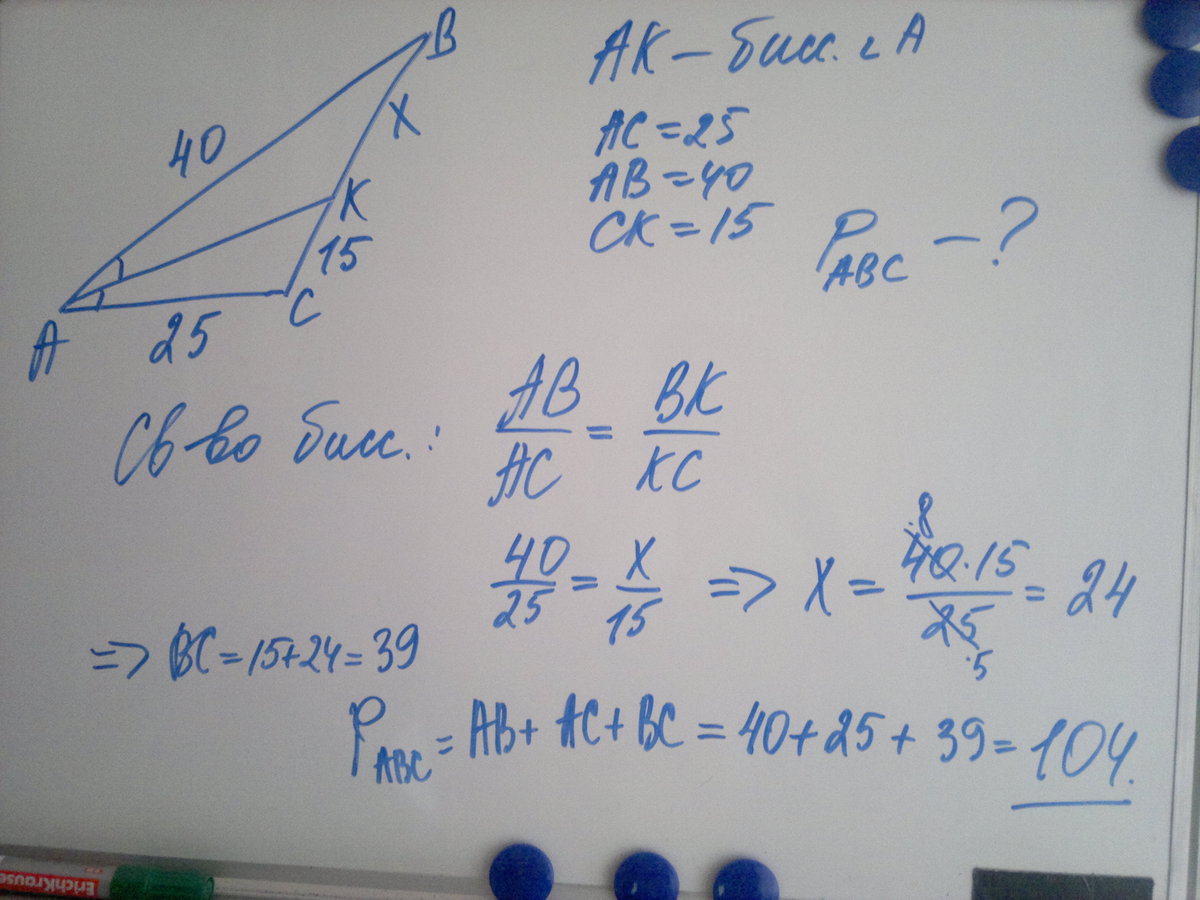 B
AK – бисс. ∠A
X
40
AC = 25
AB = 40
K
CK = 15
P ABC – ?
15
C
A
25
Св-во бисс.: AB/AC = BK/KC
40/25 = X/15 => X = 40·15/25 = 24
8
5
=> BC = 15+24 = 39
P ABC = AB + AC + BC = 40 + 25 + 39 = 104.
ErichKrause